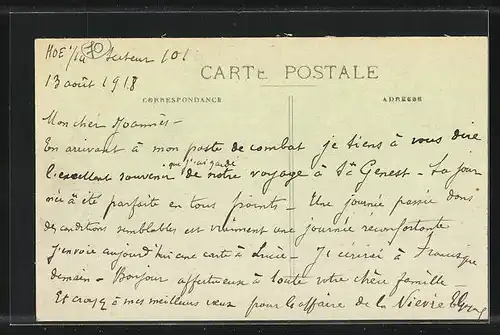 HOE 1/10 70 Secteur 101
13 août 1918
CARTE POSTALE
CORRESPONDANCE
ADRESSE
Mon cher Joannès -
En arrivant à mon poste de combat je tiens à vous dire
l'excellent souvenir que j'ai gardé de notre voyage à St Genest - La jour
née a été parfaite en tous points - Une journée passée dans
des conditions semblables est vraiment une journée réconfortante
J'envoie aujourd'hui une carte à Lucie - J'écrirai à Francisque
demain - Bonjour affectueux à toute votre chère famille -
Et croyez à mes meilleurs vœux pour l'affaire de la Nièvre